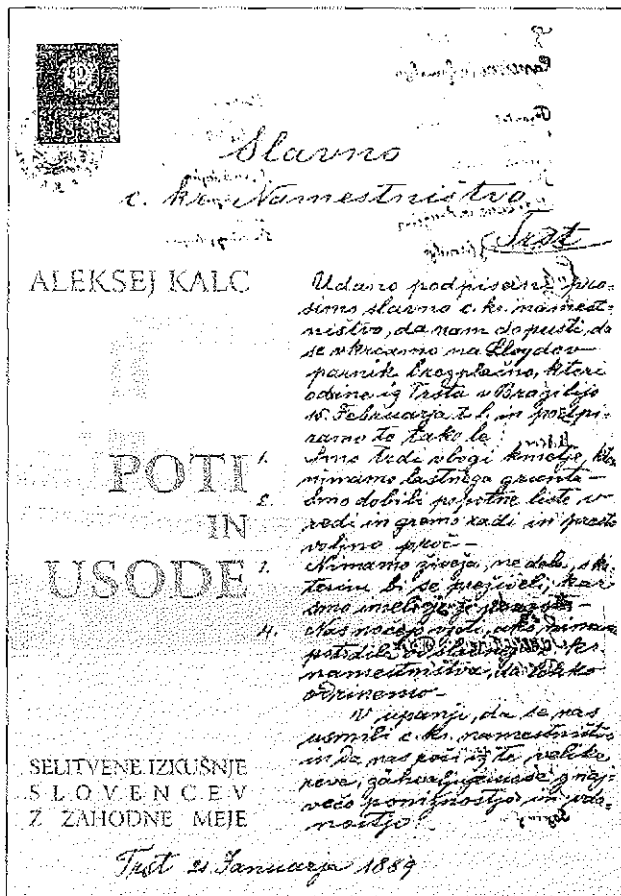 Slavno
c. kr. Namestništvo
Trst
ALEKSEJ KALC
POTI
IN
USODE
SELITVENE IZKUŠNJE
SLOVENCEV
Z ZAHODNE MEJE
Udano podpisani pro-
simo slavno c. kr. namest-
ništvo, da nam dopusti, da
se vkrcamo na Lloydov
parnik brezplačno, kteri
odrine iz Trsta v Brazilijo
15. Februarja t. l. in podpi-
ramo to tako le
1. Smo trdi vbogi kmetje, kter
nimamo lastnega grunta-
2. Smo dobili popotne liste v
redi in gremo radi in prosto
voljno proč-
3. Nimamo živeža, ne dela, s k-
terim bi se preživeli, kar
smo imeli
4. Nas nočejo
namestništva, da lahko
odrinemo-
V upanji, da se nas
usmili c. kr. namestništvo
in da nas reši iz te velike
reve, zahvaljujemo se z naj-
večo ponižnostjo in vda-
nostjo.
Trst 21 Januarja 1889